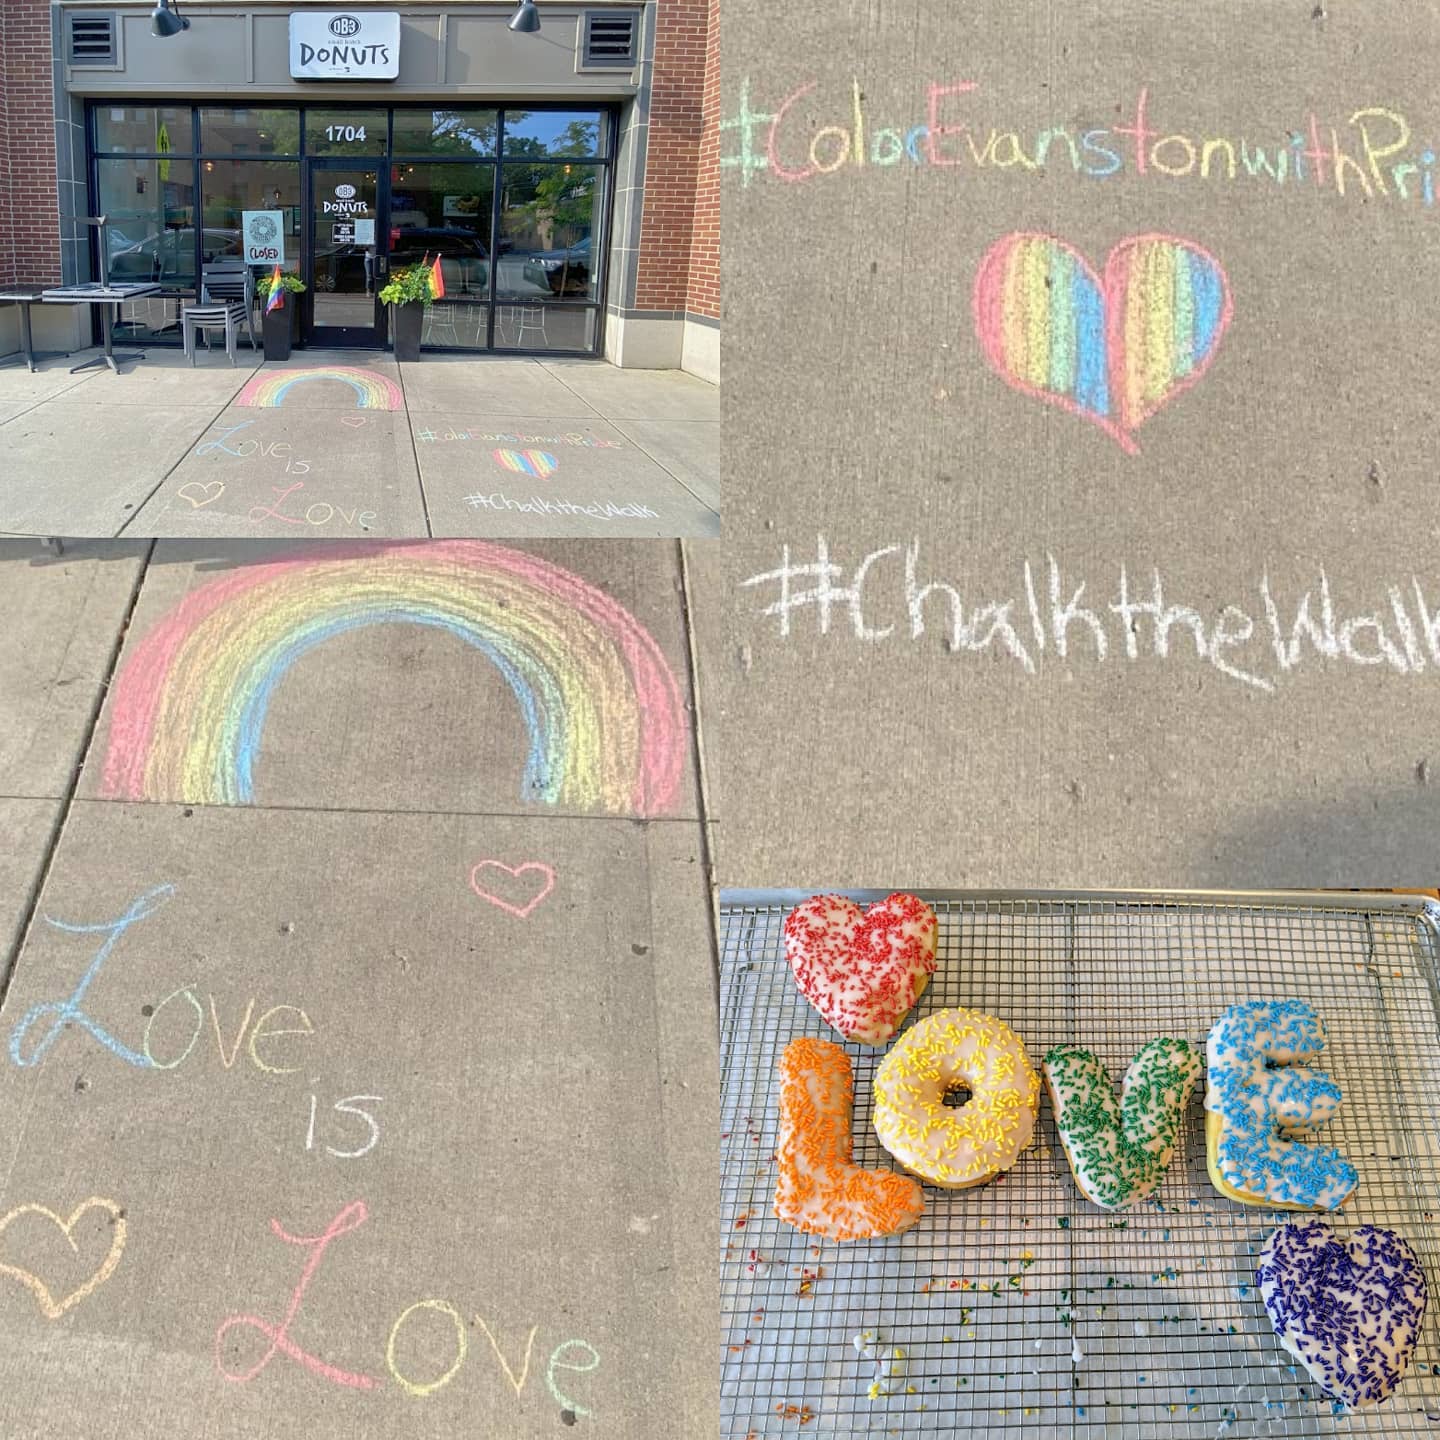 DB3
DONUTS
1704
DB3
DONUTS
CLOSED
Love
is
Love
#ColorEvanstonwithPride
#ChalktheWalk
#ColorEvanstonwithPri
#ChalktheWalk
Love
is
Love
LOVE